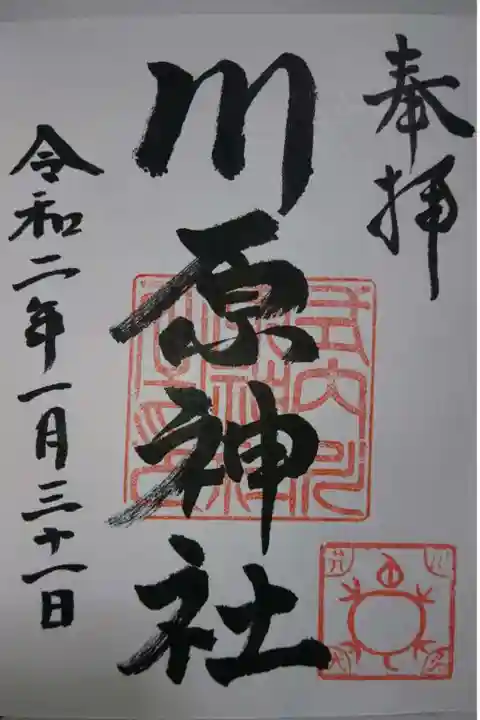 奉拝
川原神社
令和二年一月三十一日